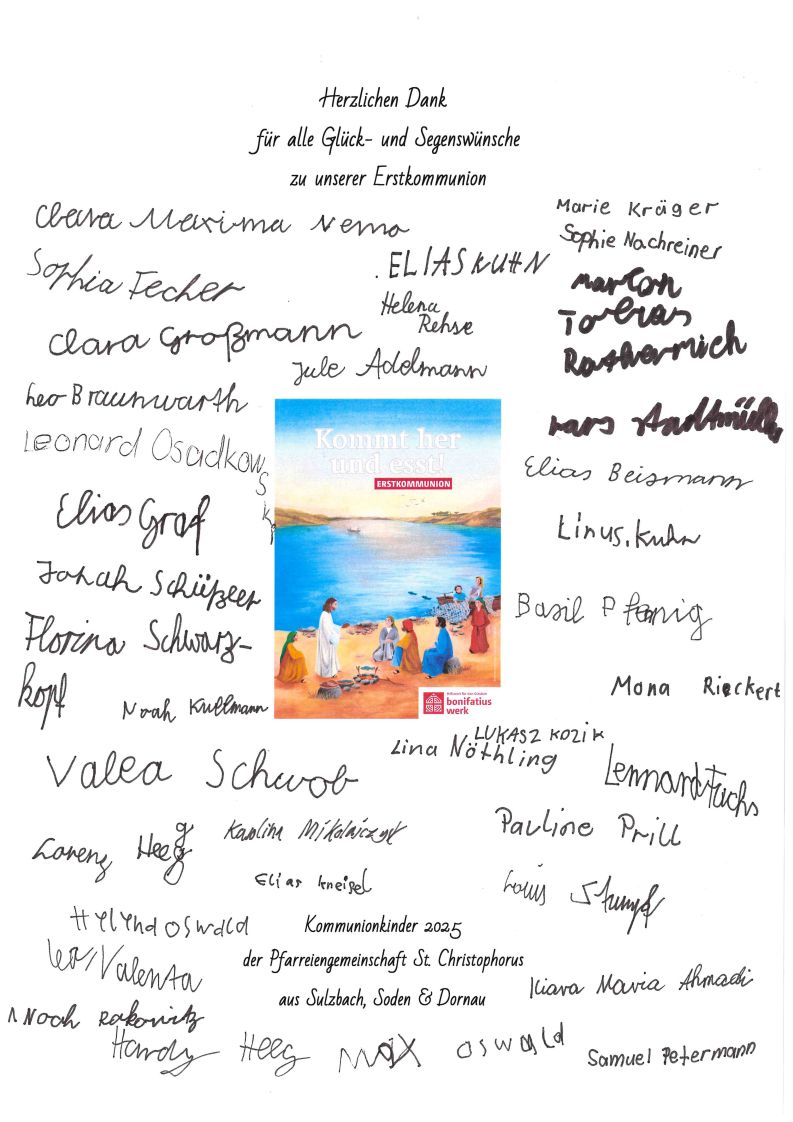 Herzlichen Dank
für alle Glück- und Segenswünsche
zu unserer Erstkommunion
Clara Maxima Nemo
Marie Kräger
Sophie Nachreiner
Sophia Fecher
ELIAS KUHN
Marlon
Helena
Rehse
Tobias
Clara Großmann
Rothermich
Jule Adelmann
Leo Braunwarth
Lars Stadtmüller
Leonard Osadkow
sk
Kommt her
und esst!
ERSTKOMMUNION
Elias Beismann
Elias Graf
Linus Kuhn
Jonah Schüßler
Basil Pfennig
Florina Schwarz-
kopf
Mona Rieckert
Noah Kullmann
bonifatius
werk
LUKASZ KOZIK
Lina Nöthling
Valea Schwob
Lennard Fuchs
Pauline Prill
Karolina Mikolajczyk
Lorenz Heeg
Elias Kneisel
Louis Stumpf
Helena Oswald
Kommunionkinder 2025
Leo Valenta
der Pfarreiengemeinschaft St. Christophorus
Kiara Maria Ahmadi
aus Sulzbach, Soden & Dornau
Noah Rakowitz
Hardy Heeg
Max Oswald
Samuel Petermann